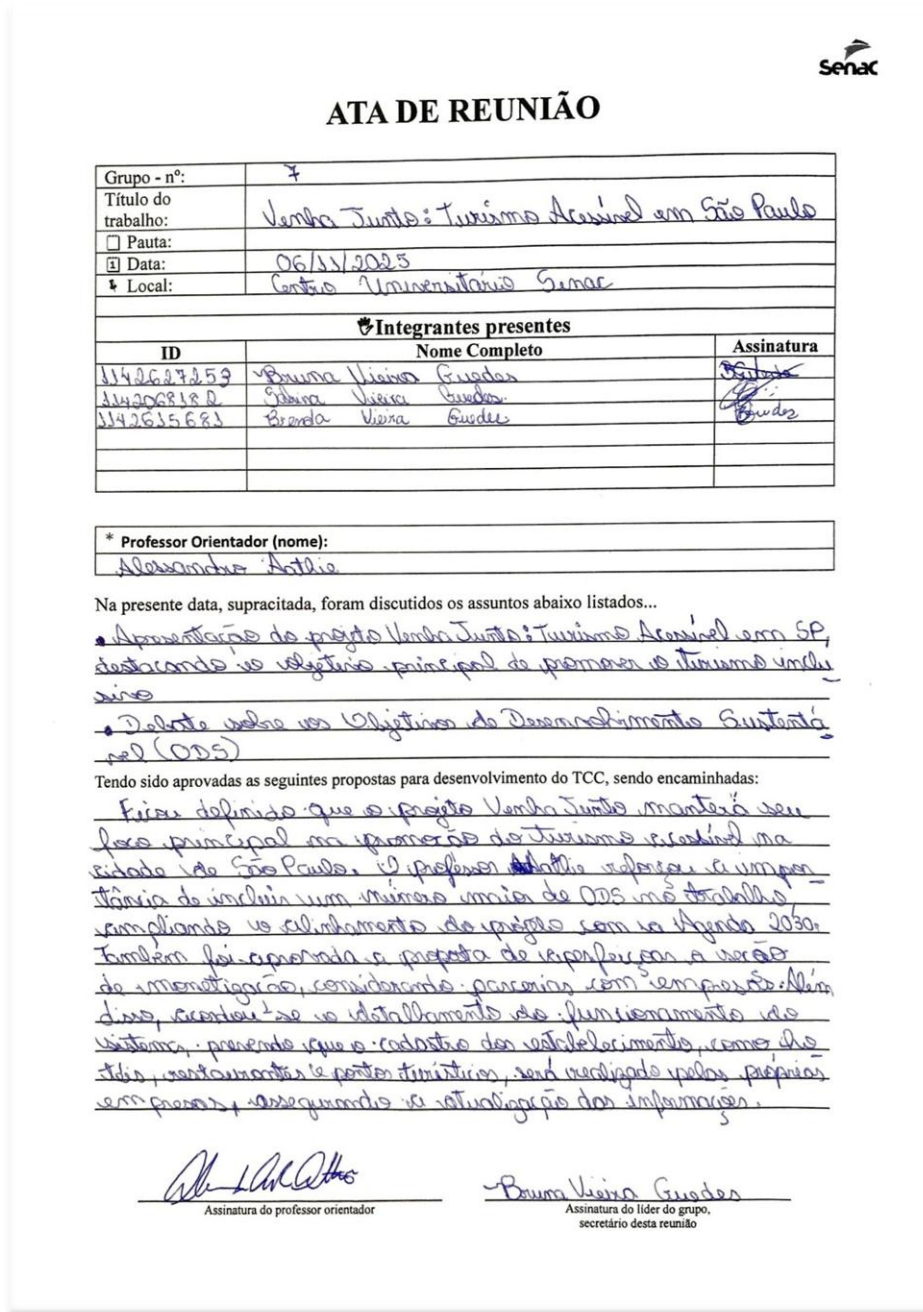 Senac
ATA DE REUNIÃO
Grupo - nº: 7
Título do trabalho: Venha Junto: Turismo Acessível em São Paulo
Pauta:
Data: 06/11/2025
Local: Centro Universitário Senac
Integrantes presentes
ID Nome Completo Assinatura
1142627259 Bruna Vieira Guedes
1142068182 Sabrina Vieira Guedes
1142615681 Brenda Vieira Guedes Guedes
* Professor Orientador (nome):
Alessandro
Na presente data, supracitada, foram discutidos os assuntos abaixo listados...
• Apresentação do projeto Venha Junto: Turismo Acessível em SP,
destacando o objetivo principal de promover o turismo inclu
sivo
• Debate sobre os Objetivos de Desenvolvimento Sustentá
vel (ODS)
Tendo sido aprovadas as seguintes propostas para desenvolvimento do TCC, sendo encaminhadas:
Ficou definido que o projeto Venha Junto manterá seu
foco principal na promoção do turismo acessível na
cidade de São Paulo. O professor reforçou a impor
tância de incluir um número maior de ODS no trabalho,
ampliando o alinhamento do projeto com a Agenda 2030.
Também foi aprovada a proposta de aperfeiçoar a seção
de monetização, considerando parcerias com empresas. Além
disso, acordou-se o detalhamento do funcionamento do
sistema, prevendo que o cadastro dos estabelecimento, como ho
téis, restaurantes e pontos turísticos, será realizado pelas próprias
empresas, assegurando a atualização das informações.
Bruna Vieira Guedes
Assinatura do professor orientador
Assinatura do líder do grupo,
secretário desta reunião